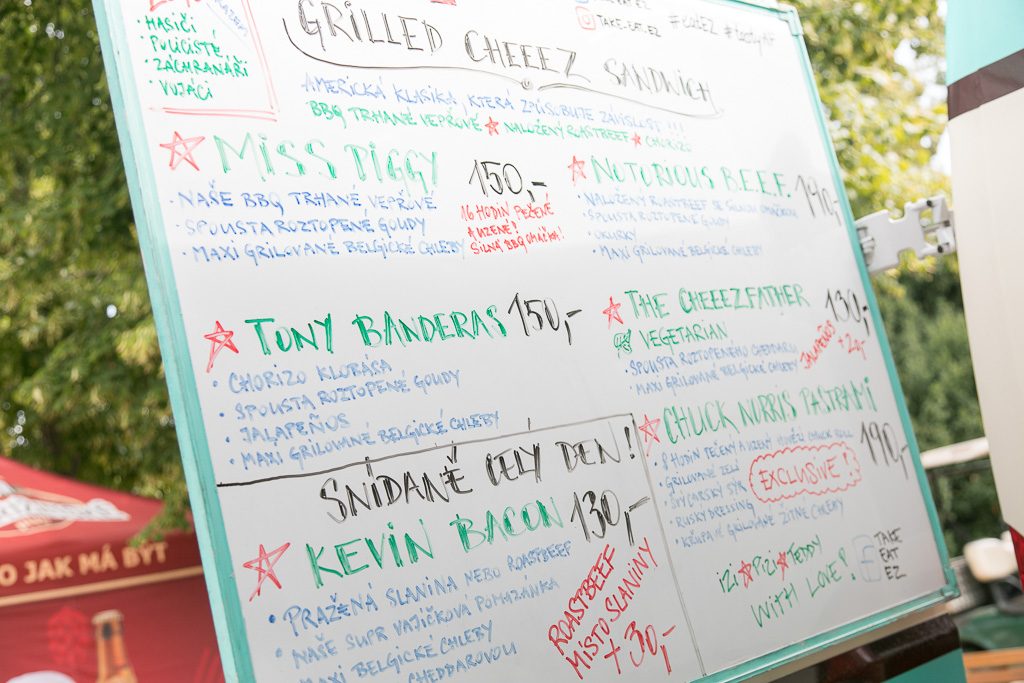 HASIČI
POLICISTÉ
ZÁCHRANÁŘI
VOJÁCI
TAKE-EAT.EZ
GRILLED CHEEEZ SANDWICH
AMERICKÁ KLASIKA, KTERÁ ZPŮSOBUJE ZÁVISLOST !!!
BBQ TRHANÉ VEPŘOVÉ ☆ NALOŽENÝ ROASTBEEF ☆ CHORIZO
MISS PIGGY 150,-
· NAŠE BBQ TRHANÉ VEPŘOVÉ
· SPOUSTA ROZTOPENÉ GOUDY
· MAXI GRILOVANÉ BELGICKÉ CHLEBY
16 HODIN PEČENÉ
A UZENÉ!
SILNÝ BBQ OMÁČKA!
NOTORIOUS B.E.E.F. 190,-
· NALOŽENÝ ROASTBEEF SE SILNOU OMÁČKOU
· SPOUSTA ROZTOPENÉ GOUDY
· OKURKY
· MAXI GRILOVANÉ BELGICKÉ CHLEBY
TONY BANDERAS 150,-
· CHORIZO KLOBÁSA
· SPOUSTA ROZTOPENÉ GOUDY
· JALAPEÑOS
· MAXI GRILOVANÉ BELGICKÉ CHLEBY
THE CHEEEZFATHER 130,-
VEGETARIAN
· SPOUSTA ROZTOPENÉHO CHEDDARU
· MAXI GRILOVANÉ BELGICKÉ CHLEBY
JALAPEÑOS
+20,-
CHUCK NORRIS PASTRAMI 190,-
· 8 HODIN PEČENÝ A UZENÝ HOVĚZÍ CHUCK ROLL
· GRILOVANÉ ZELÍ
· ŠVÝCARSKÝ SÝR
· RUSKÝ DRESSING
· KŘUPAVÉ GRILOVANÉ ŽITNÉ CHLEBY
EXCLUSIVE!
SNÍDANĚ CELÝ DEN!
KEVIN BACON 130,-
· PRAŽENÁ SLANINA NEBO ROASTBEEF
· NAŠE SUPR VAJÍČKOVÁ POMAZÁNKA
MAXI BELGICKÉ CHLEBY
CHEDDAROVOU
ROASTBEEF
MÍSTO SLANINY
+ 30,-
IZI ☆ PIZI ☆ TEDDY
WITH LOVE!
TAKE
EAT
EZ
O JAK MÁ BÝT